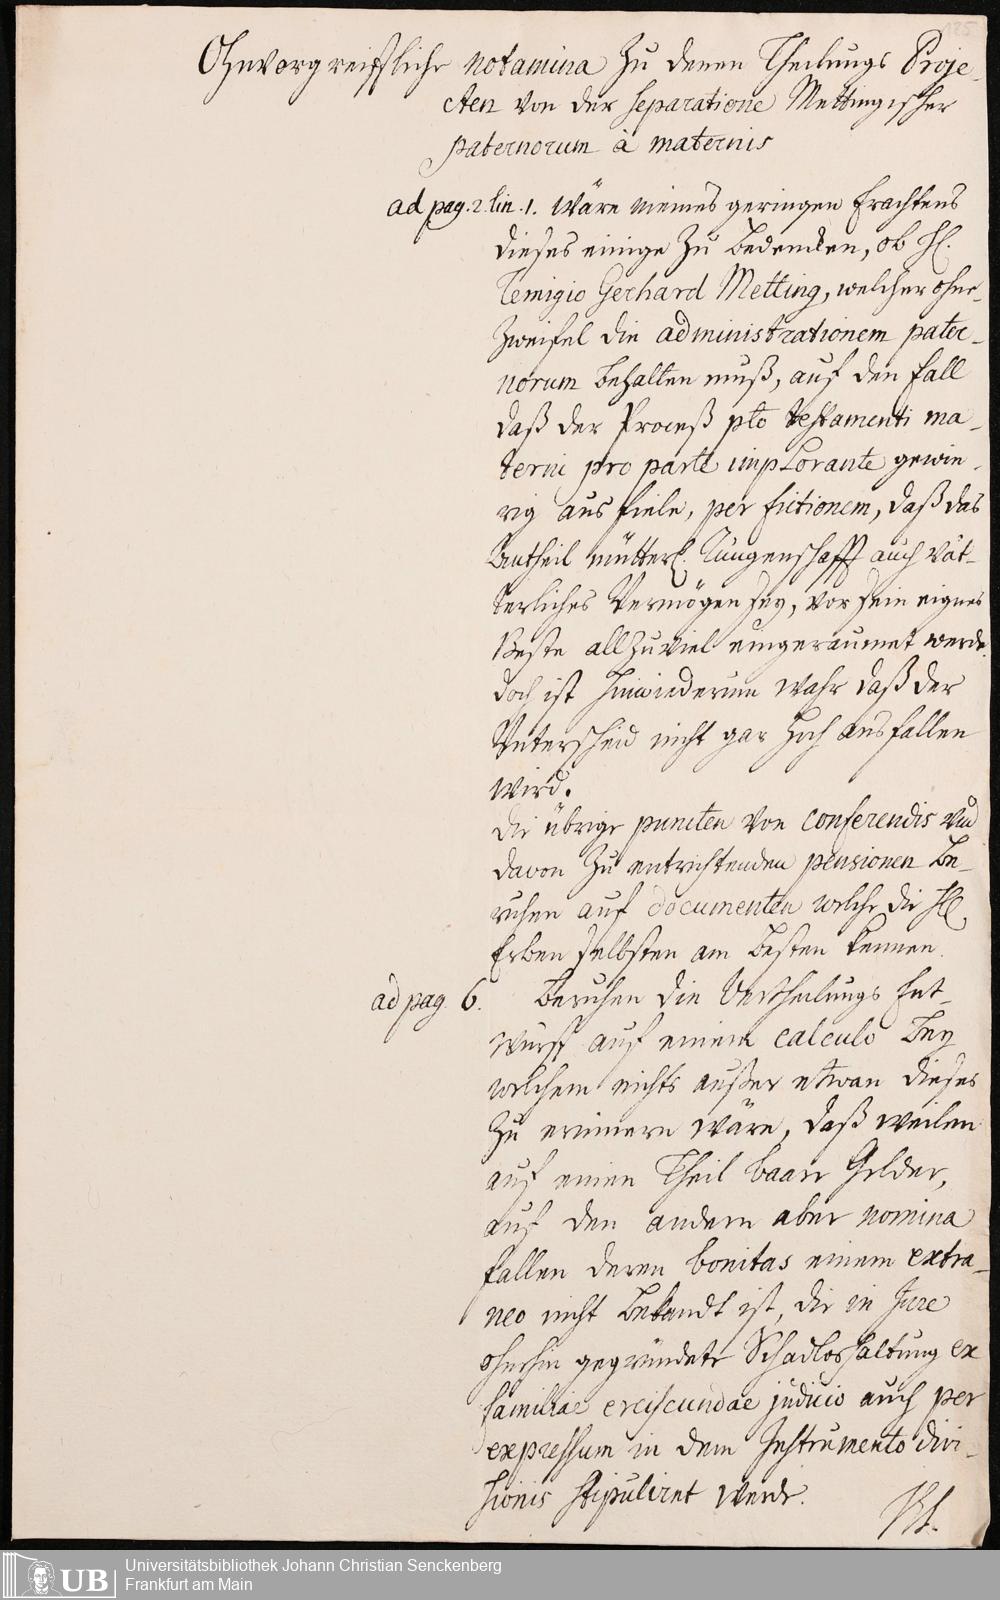 125
Ohnvorgreiffliche notamina zu denen Theilungs Proje-
cten von der separatione Mettingischer
paternorum à maternis
ad pag. 2. lin. 1. wäre meines geringen Erachtens
dieses einige zu bedencken, ob H.
Remigio Gerhard Metting, welcher ohne
Zweifel die administrationem pater-
norum behalten muß, auf den Fall
daß der Proceß pto testamenti ma-
terni pro parte implorante gewie-
rig aus fiele, per fictionem, daß das
Antheil mütterl. Errungenschafft auch vät-
terliches Vermögen sey, vor sein eignes
Beste allzuviel eingeraumet werde.
doch ist hinwiederum wahr daß der
Unterscheid nicht gar hoch ausfallen
wird.
die übrige puncten von conferendis und
davon zu entrichtenden pensionen be-
ruhen auf documenten welche die HH.
Erben selbsten am besten kennen.
ad pag. 6. Beruhen die Vertheilungs Ent-
würff auf einem calculo bey
welchem nichts außer etwan dieses
zu erinnern wäre, daß weilen
auf einen Theil baare Gelder,
auf den andern aber nomina
fallen deren bonitas einem extra-
neo nicht bekandt ist, die in Jure
ohnehin gegründete Schadloshaltung ex
familiae erciscundae judicio auch per
expressum in dem Instrumento divi-
sionis stipuliret werde.
UB
Universitätsbibliothek Johann Christian Senckenberg
Frankfurt am Main